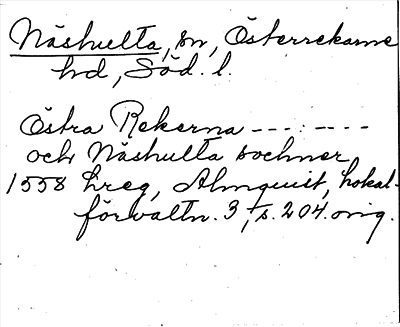 Näshulta, sn, Österrekarne
hd, Söd. l.
Östra Rekarna ---:----
och Näshulta sochner
1558 hreg, Almquist, Lokal-
förvaltn. 3, s. 204. orig.